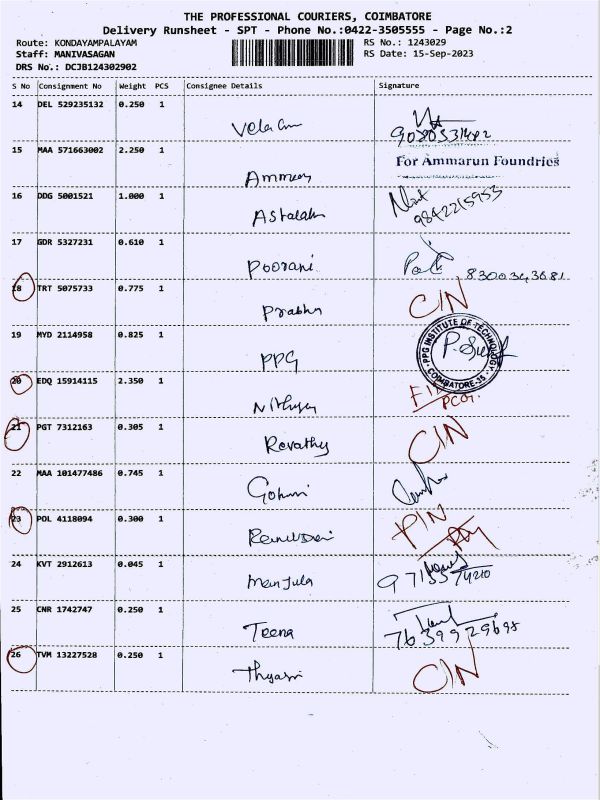 THE PROFESSIONAL COURIERS, COIMBATORE
Delivery Runsheet - SPT - Phone No.:0422-3505555 - Page No.:2
Route: KONDAYAMPALAYAM RS No.: 1243029
Staff: MANIVASAGAN RS Date: 15-Sep-2023
DRS No.: DCJB124302902
S No Consignment No Weight PCS Consignee Details Signature
14 DEL 529235132 0.250 1
15 MAA 571663002 2.250 1 For Ammarun Foundries
16 DDG 5001521 1.000 1 9842215953
17 GDR 5327231 0.610 1 Poorani 8300343681
18 TRT 5075733 0.775 1 Prabhu C/N
19 MYD 2114958 0.825 1 PPG PPG INSTITUTE OF TECHNOLOGY COIMBATORE-35
20 EDQ 15914115 2.350 1 Nithya
21 PGT 7312163 0.305 1 Revathy C/N
22 MAA 101477486 0.745 1
23 POL 4118094 0.300 1 P/N
24 KVT 2912613 0.045 1 Manjula
25 CNR 1742747 0.250 1 Teena 7639929698
26 TVM 13227528 0.250 1 C/N